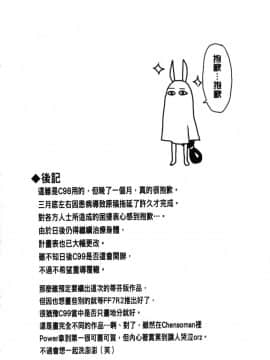 抱歉…抱歉
◆後記
這雖是C98用的，但晚了一個月，真的很抱歉。
三月底左右因患病導致原稿拖延了許久才完成。
對各方人士所造成的困擾衷心感到抱歉…。
由於日後仍得繼續治療身體，
計畫表也已大幅更改。
雖不知日後C99是否會開辦，
不過不希望重導覆轍。
那麼雖預定要續出這次的等芬版作品，
但因也想畫些別的就等FF7R2推出好了，
很猶豫C99當中是否只畫劾分就好。
還是畫完全不同的作品…啊、對了，雖然在Chensoman裡
Power拿到第一很可喜可賀，但內心著實累到讓人哭泣orz。
不過會想一起洗澎澎（笑）